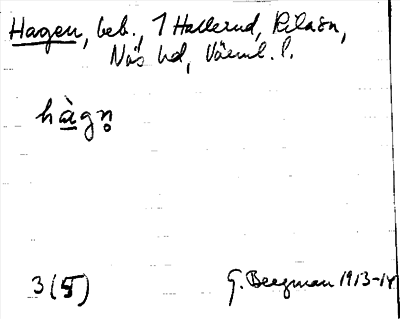 Hagen, beb., 1 Hallerud, Kila sn,
Näs hd, Värml. l.
hàgn̥
3(5)
G. Bergman 1913-14